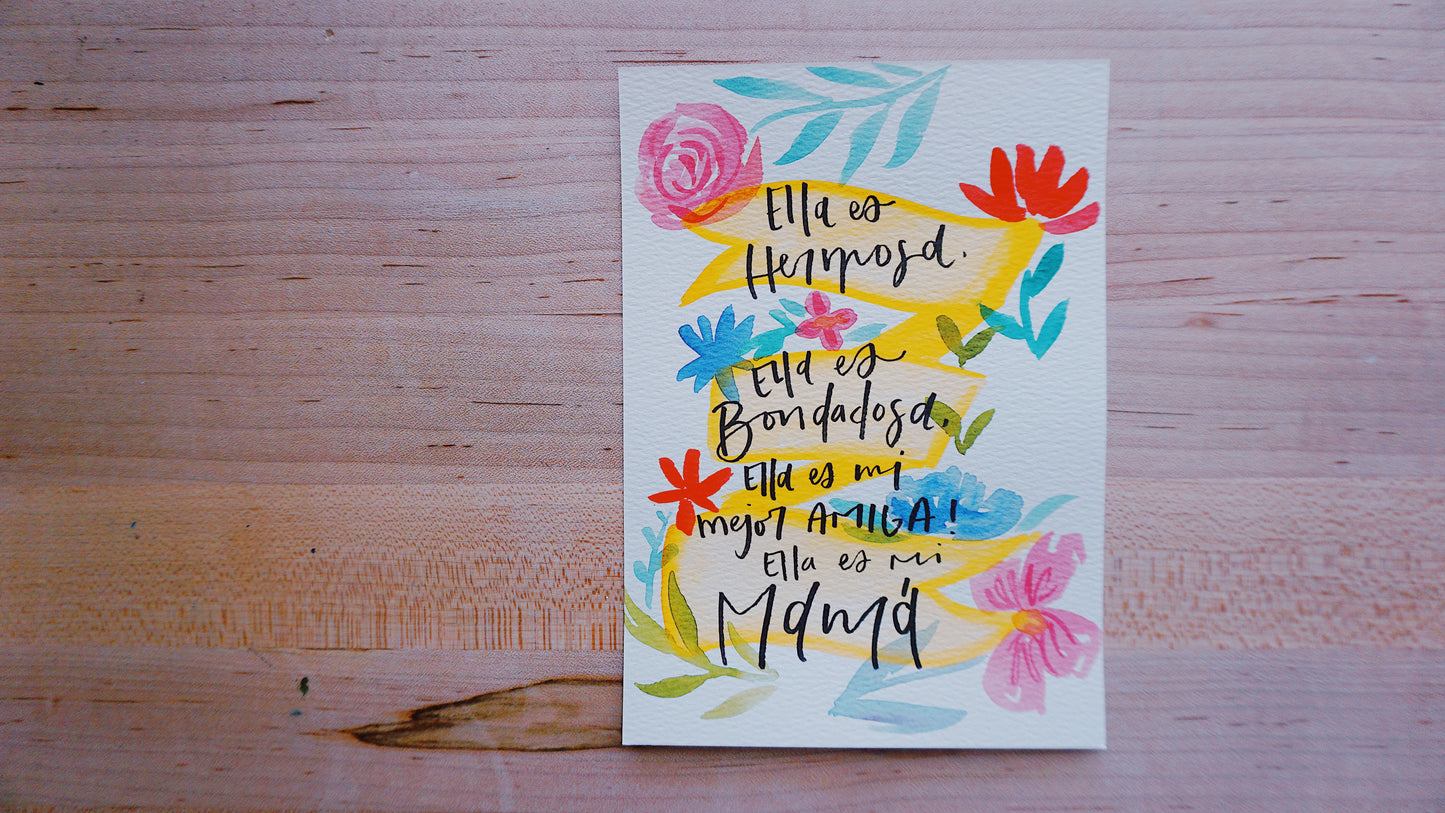 Ella es
Hermosa.
Ella es
Bondadosa,
Ella es mi
mejor AMIGA!
Ella es mi
Mamá